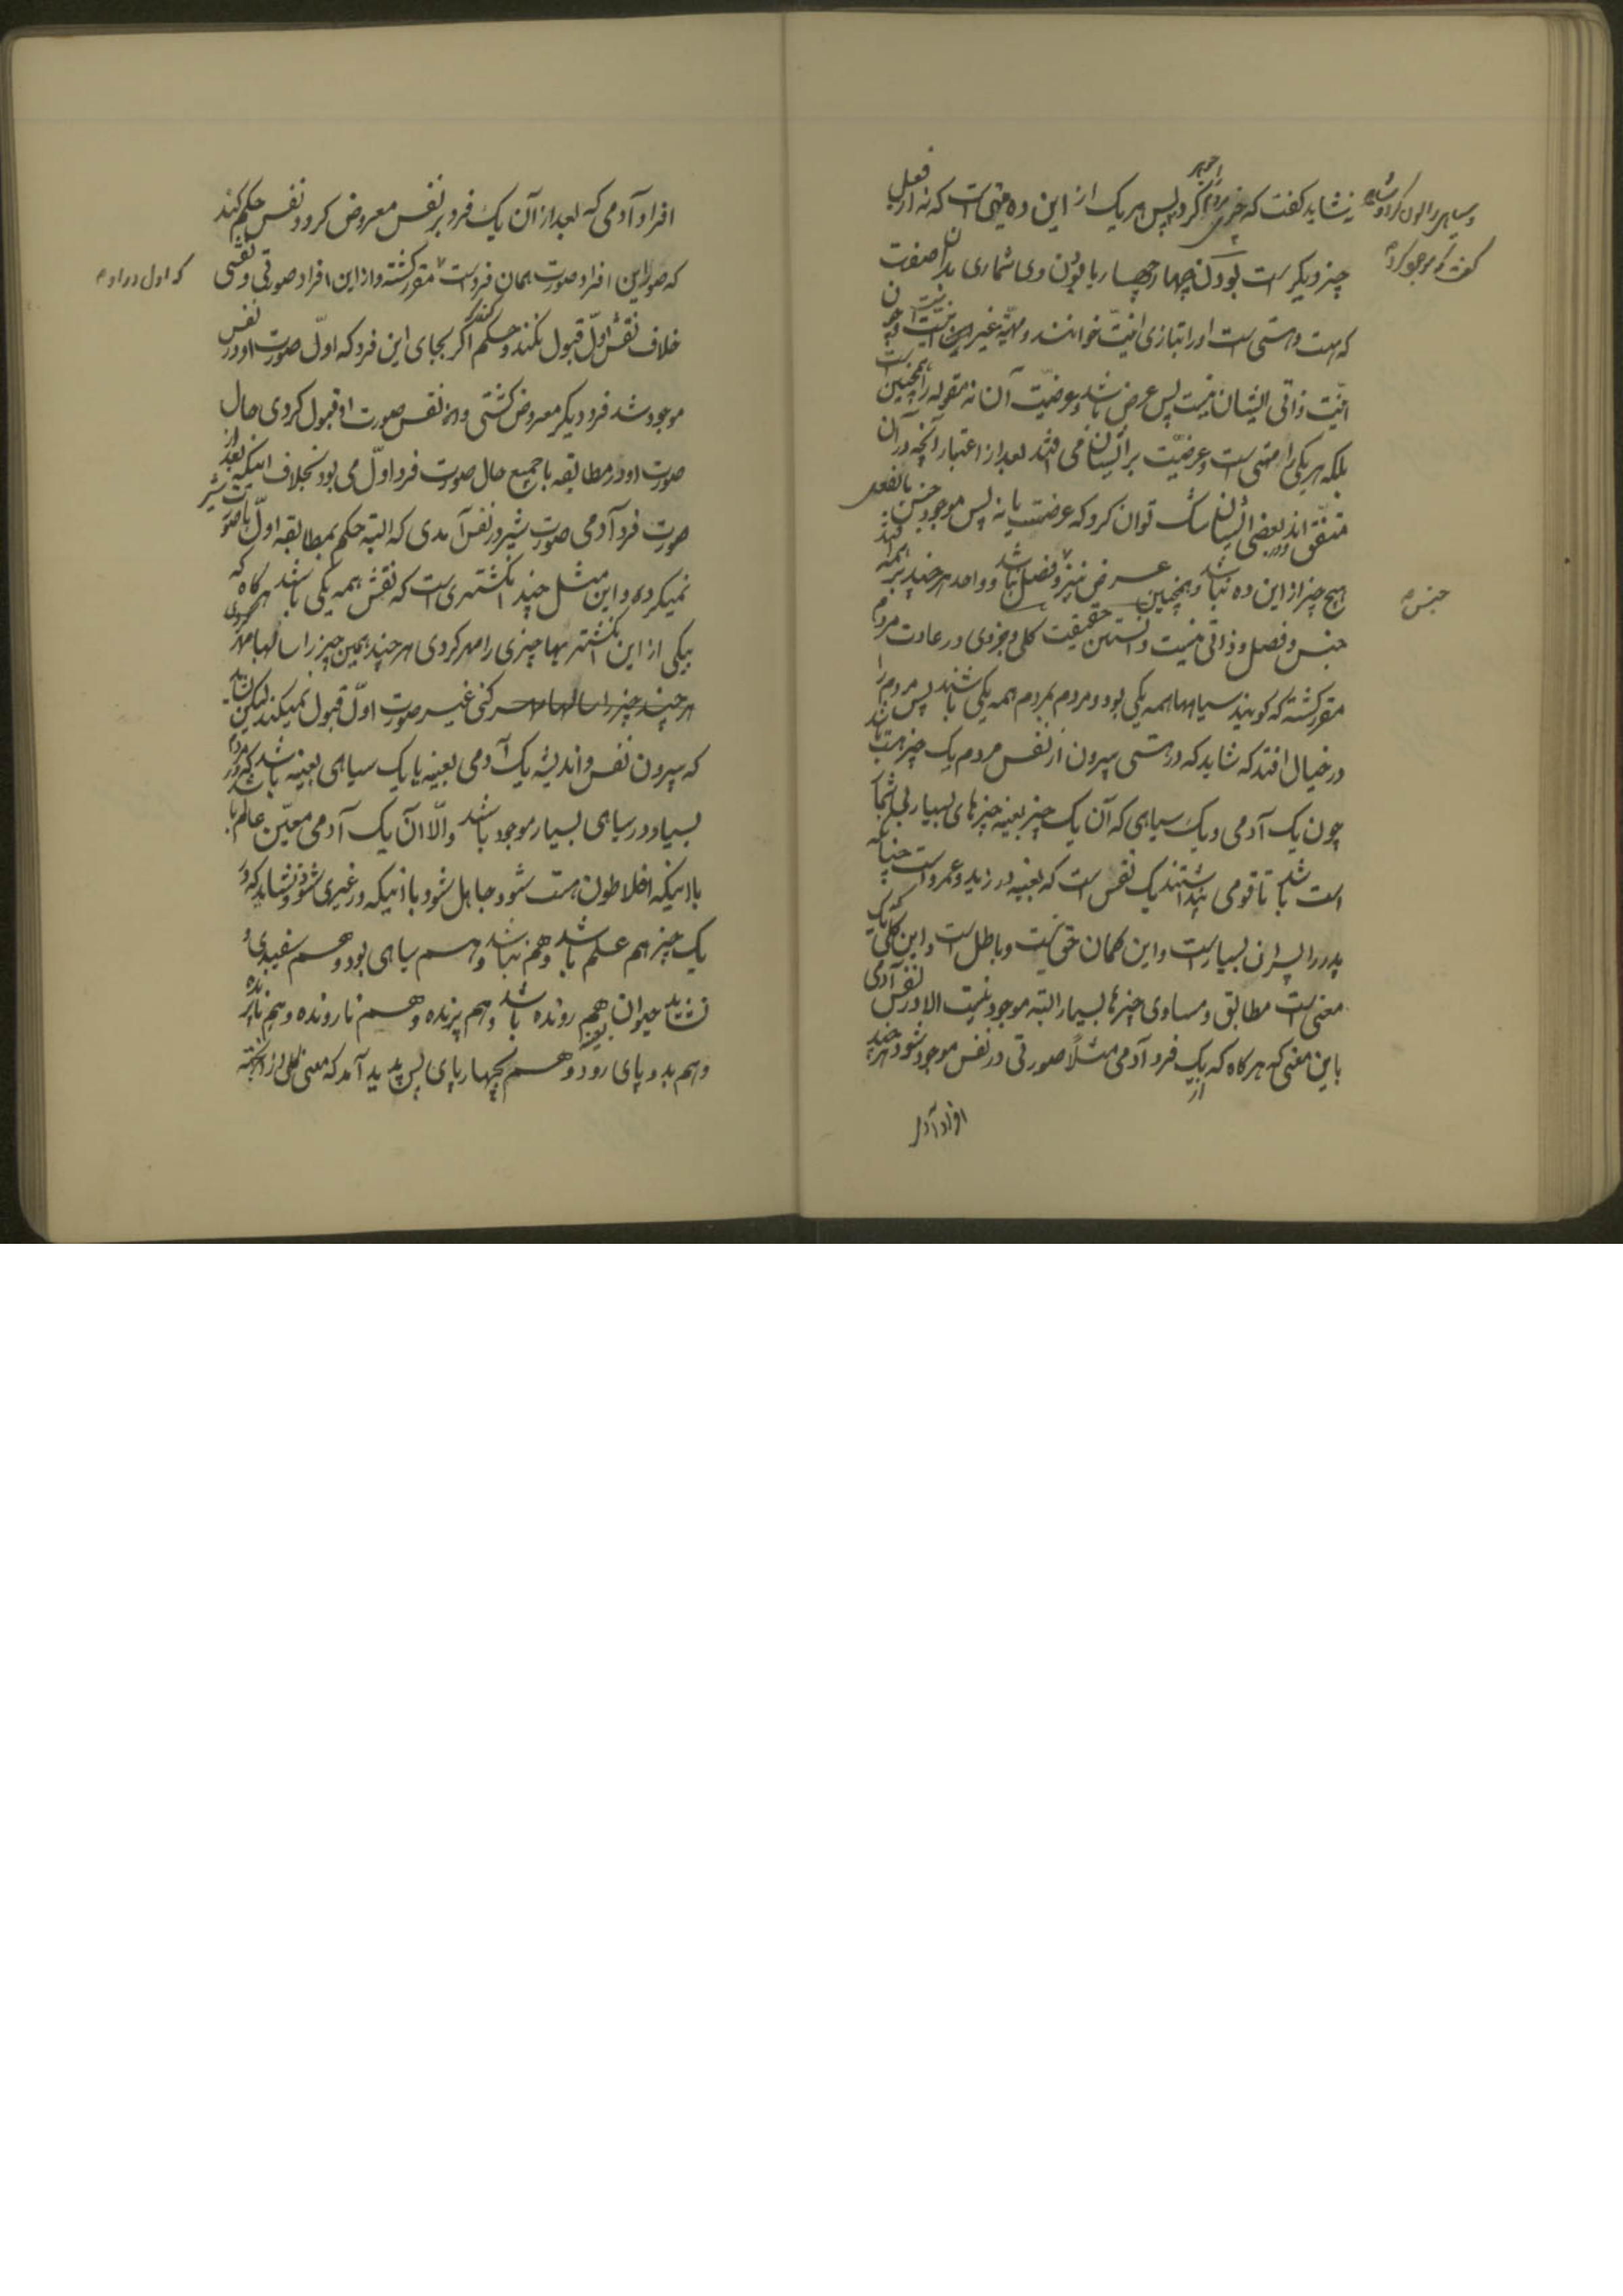 نشاید گفت که چیزی مردم را جوهر کرد پس هر یک از این ده مهیات است که نه از فعل
وسیاهی را لون کرد و شاید
گفت که موجود کرد
چیز دیگریست بودن چهار چهار یا بودن وی شماری بدان صفت
که هست و هستی است او را بتازی انیّت خوانند و مهیّة غیر انیّت است و چون
انیّت ذاتی ایشان نیست پس عرض باشد و عرضیّت آن نه مقوله راست همچنین
بلکه هر یکی را مهیتی است و عرضیّت بر ایشان می افتد بعد از اعتبار آنچه در آن
متفق اند و در بعضی ایشان شک توان کرد که عرضست یا نه پس موجود جنس بالفعل
هیچ چیز از این ده نباشد و همچنین عرض نیز و فصل نباشد و واحد هر چند بر همه افتد
جنس
جنس و فصل و ذاتی نیست دانستن حقیقت کلی و جزوی در عادت مردم
مقرر گشته که گویند سیاهیها همه یکی بود و مردم بمردم همه یکی باشند پس مردم را
در خیال افتد که شاید که در هستی بیرون از نفس مردم یک چیز هست باشد
چون یک آدمی و یک سیاهی که آن یک چیز بعینه چیزهای بسیار بی شمار
است باشد تا قومی پنداشتند یک نفس است که بعینه در زید و عمرو است چنانکه
پدر را پسران بسیارست و این گمان حق نیست و باطل است و این کلی که یک
معنی است مطابق و مساوی چیزها بسیار البته موجود نیست الا در نفس آدمی
باین معنی که هر گاه که از یک فرد آدمی مثلاً صورتی در نفس موجود شود هر چند
افراد آدمی
افراد آدمی که بعد از آن یک فرد بر نفس معروض کرد و نفس حکم کند
که صور این افراد صورت همان فردست مقرر گشته و از این افراد صورتی و نقشی
که اول در او
خلاف نقش اول قبول نکند و حکم کند که اگر بجای این فرد که اوّل صورت او در نفس
موجود شد فرد دیگر معروض گشتی و از نفس صورت او قبول کردی حال
صورت او در مطابقه با جمیع حال صورت فرد اوّل می بود بخلاف اینکه بعد از
صورت فرد آدمی صورت شیر در نفس آمدی که البته حکم بمطابقه اوّل با صورت شیر
نمیکرد و این مثل چند انگشتری است که نقش همه یکی باشد هر گاه که
بیکی از این انگشتریها چیزی را مهر کردی هر چند بهمین چیز را سالها مهر کردی
هر چند چیز را سالها مهر کنی غیر صورت اوّل قبول نمیکند لیکن نشاید
که بیرون نفس و اندیشه یک آدمی بعینه یا یک سیاهی بعینه باشد که در مردم
بسیار و در سیاهی بسیار موجود باشد و الّا آن یک آدمی معیّن عالم باشد
بااینکه افلاطون هست شود و جاهل شود باآنیکه در غیری شود و نشاید که در
یک چیز هم علم باشد و هم نباشد و هم سیاهی بود و هم سفیدی و
نشاید حیوان هم رونده باشد و هم پرنده و هم نارونده و هم ناپرنده
و هم بدو پای رود و هم بچهارپای پس پدید آمد که معنی کلی از آنجهة